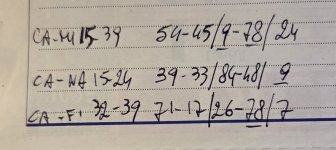 CA-M 15 39 54-45/9-78/24
CA-NA 15-24 39-33/84-48/9
CA-F1 32-39 71-17/26-78/7